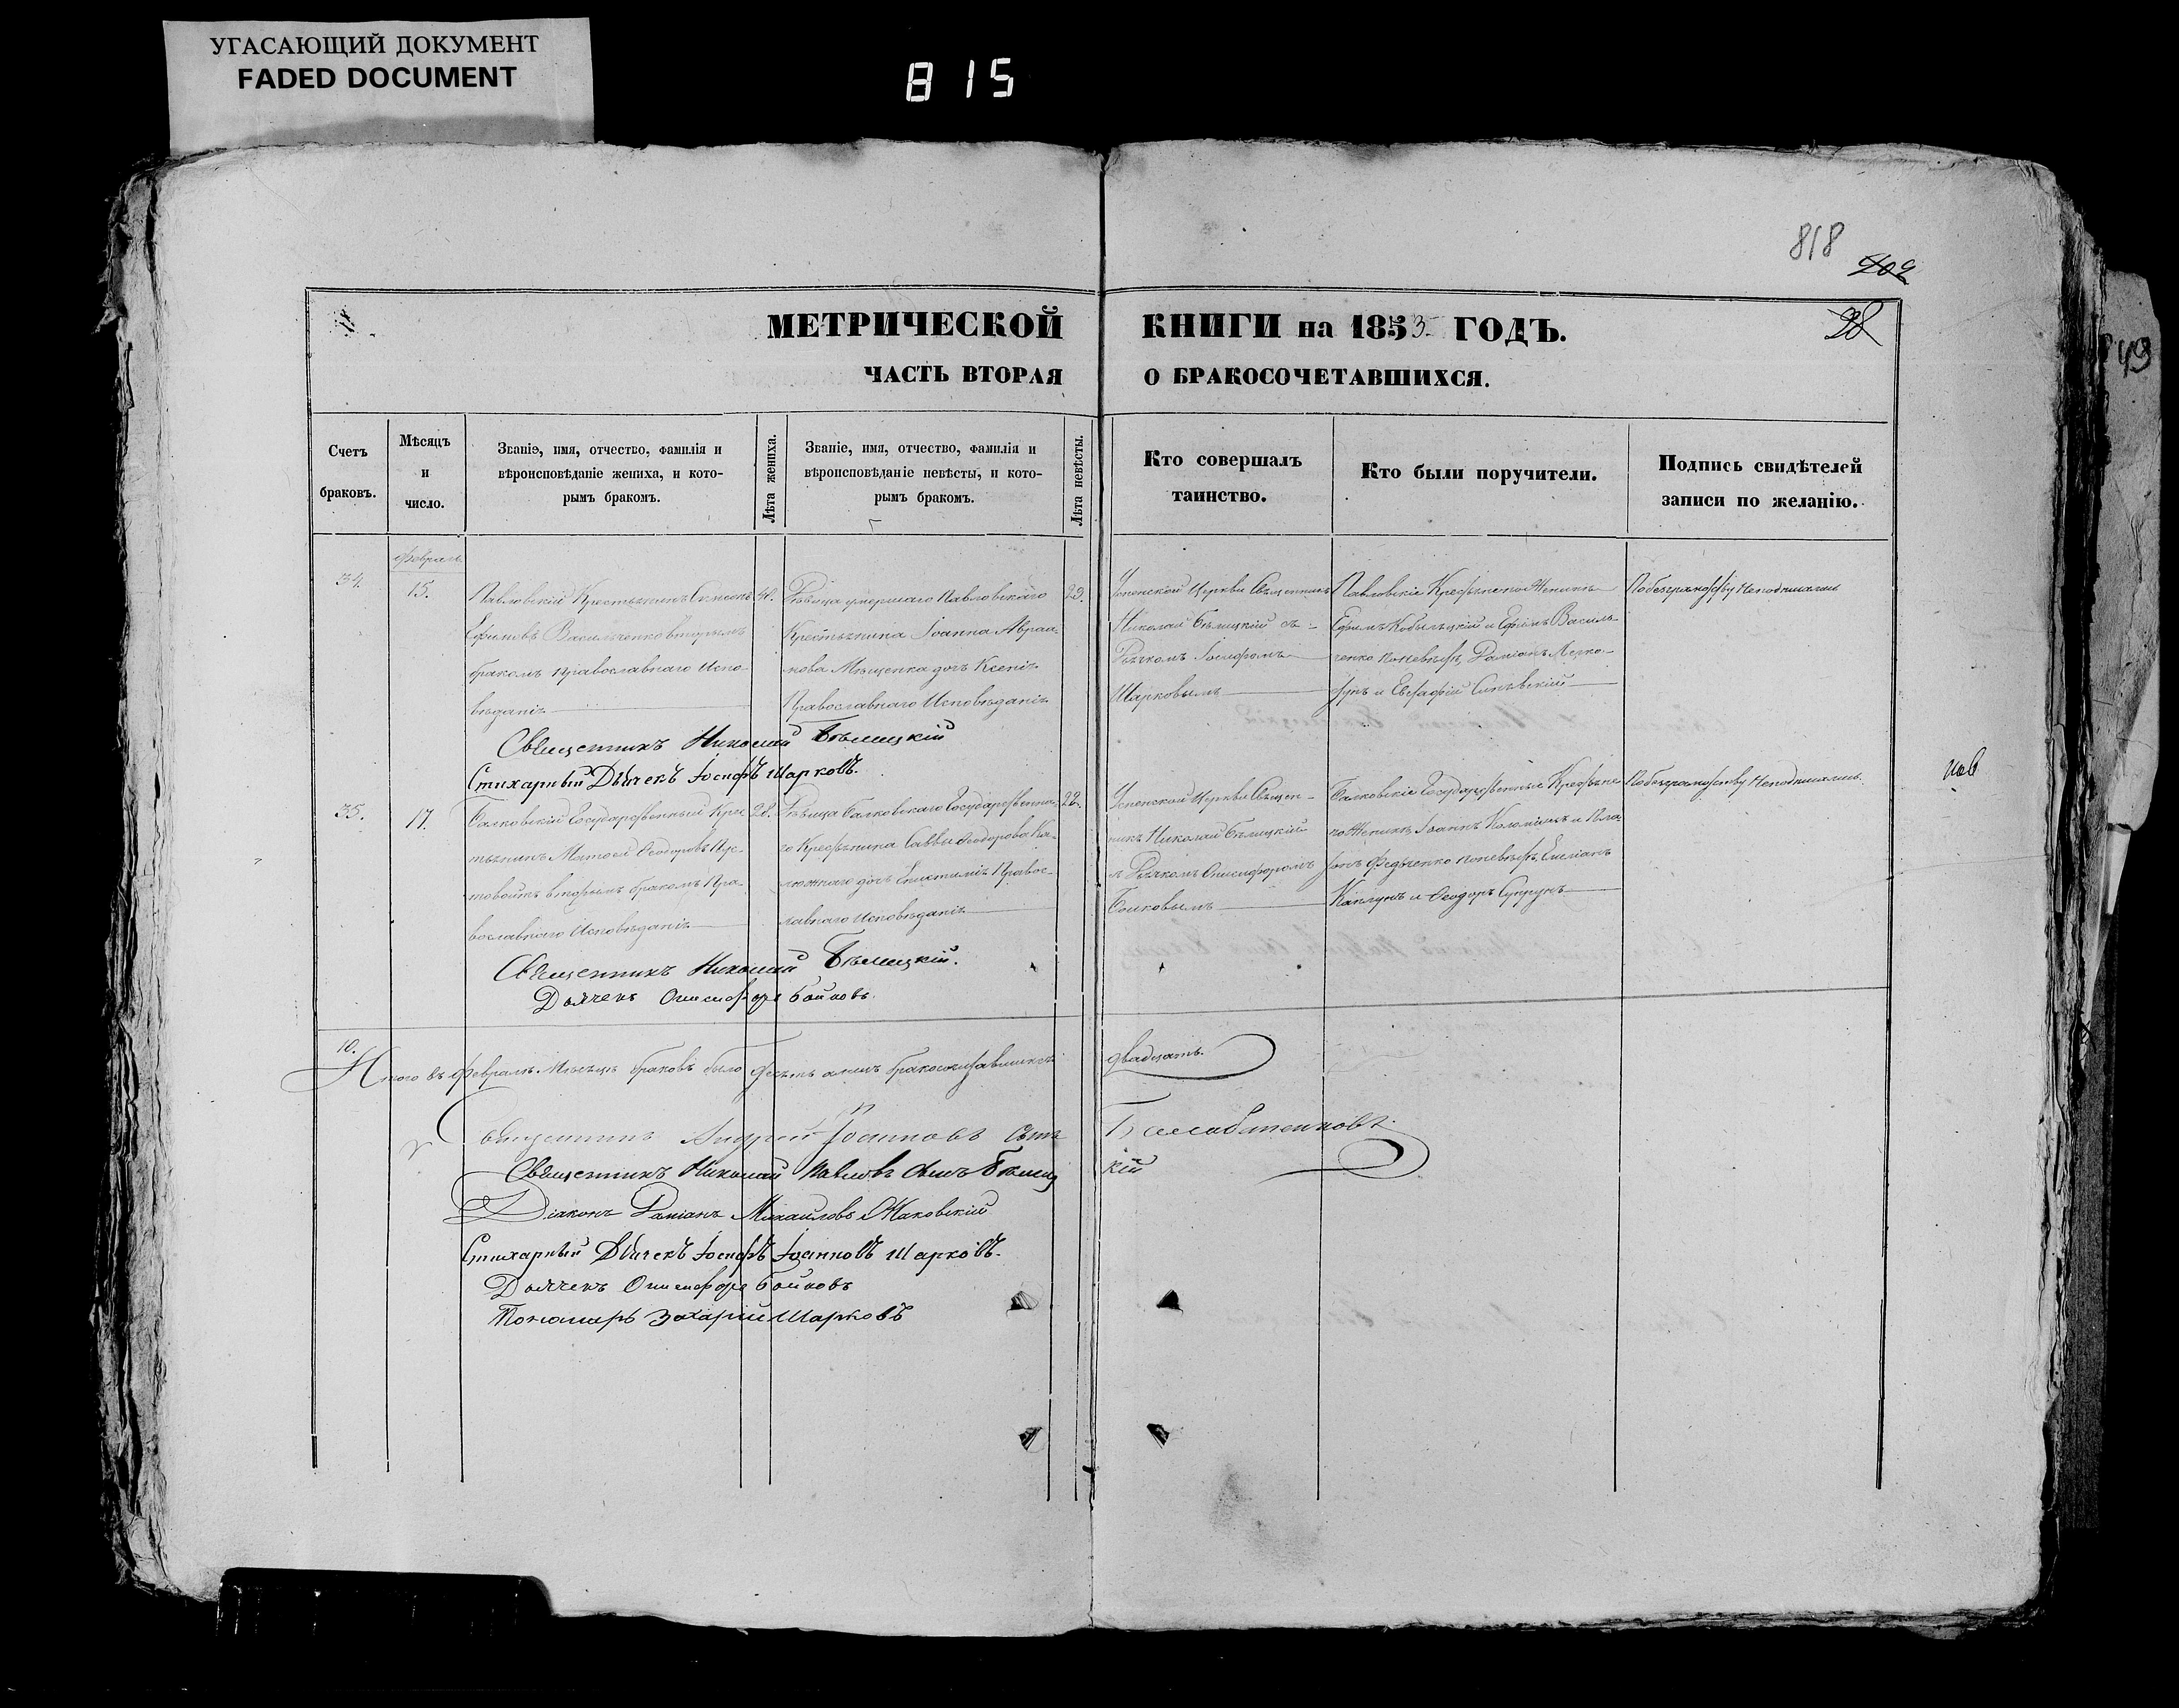 УГАСАЮЩИЙ ДОКУМЕНТ
FADED DOCUMENT
815
818
28
МЕТРИЧЕСКОЙ КНИГИ на 1853 ГОДЪ.
ЧАСТЬ ВТОРАЯ О БРАКОСОЧЕТАВШИХСЯ.
Счетъ браковъ.
Мѣсяцъ и число.
Званіе, имя, отчество, фамилія и
вѣроисповѣданіе жениха, и кото-
рымъ бракомъ.
Лѣта жениха.
Званіе, имя, отчество, фамилія и
вѣроисповѣданіе невѣсты, и кото-
рымъ бракомъ.
Лѣта невѣсты.
Кто совершалъ
таинство.
Кто были поручители.
Подпись свидѣтелей
записи по желанію.
Февраль
34.
15.
Павловскій Крестьянинъ Симеонъ
Ефимовъ Васильченко вторымъ
бракомъ православнаго Испо-
вѣданія
Дѣвица умершаго Павловскаго
Крестьянина Іоанна Авраа-
мова Мищенка дочь Ксенія
Православнаго Исповѣданія
23.
Успенской Церкви Священникъ
Николай Бѣлицкій съ
Дьячкомъ Іосифомъ
Шарковымъ
Павловскіе Крестьяне по Женихѣ
Ефимъ Кобылѣцкій и Ефимъ Василь-
ченко по невѣстѣ, Даміанъ
и Евстафій
По безграмотству Неподписались
Священникъ Николай Бѣлицкій
Стихарный Дьячекъ Іосифъ Шарковъ.
35.
17.
Балковскій Государственный Кре-
стьянинъ Матѳей Ѳеодоровъ Пус-
товойтъ вторымъ бракомъ Пра-
вославнаго Исповѣданія
28.
Дѣвица Балковскаго Государственна-
го Крестьянина Саввы Ѳеодорова Ка-
люжнаго дочь Епистимія Правос-
лавнаго Исповѣданія
22.
Успенской Церкви Священ-
никъ Николай Бѣлицкій
съ Дьячкомъ Онисифоромъ
Бойковымъ
Балковскіе Государственные Крестьяне
по Женихѣ Іоаннъ Коломіецъ и Пла-
тонъ Федченко по невѣстѣ, Емеліанъ
Каплунъ и Ѳеодоръ Супрунъ
По безграмотству Неподписались.
Священникъ Николай Бѣлицкій.
Дьячекъ Онисифоръ Бойковъ.
10.
Итого въ Февралѣ Мѣсяцѣ браковъ было десять а лицъ бракосочетавшихся двадцать.
Священникъ Андрей Іоанновъ сынъ
Священникъ Николай Павловъ сынъ Бѣлицкій
Діаконъ Даміанъ Михаиловъ Жаковскій
Стихарный Дьячекъ Іосифъ Іоанновъ Шарковъ.
Дьячекъ Онисифоръ Бойковъ
Пономарь Захарій Шарковъ